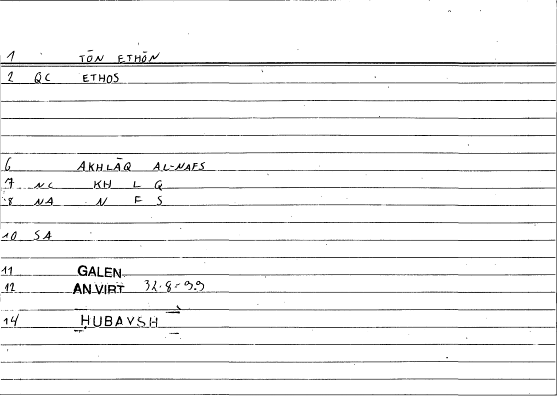 1 TŌN ETHŌN
2 QC ETHOS
6 AKHLĀQ AL-NAFS
7 NC KH L Q
8 NA N F S
10 SA
11 GALEN
12 AN.VIRT 32.8-9.9
14 HUBAYSH